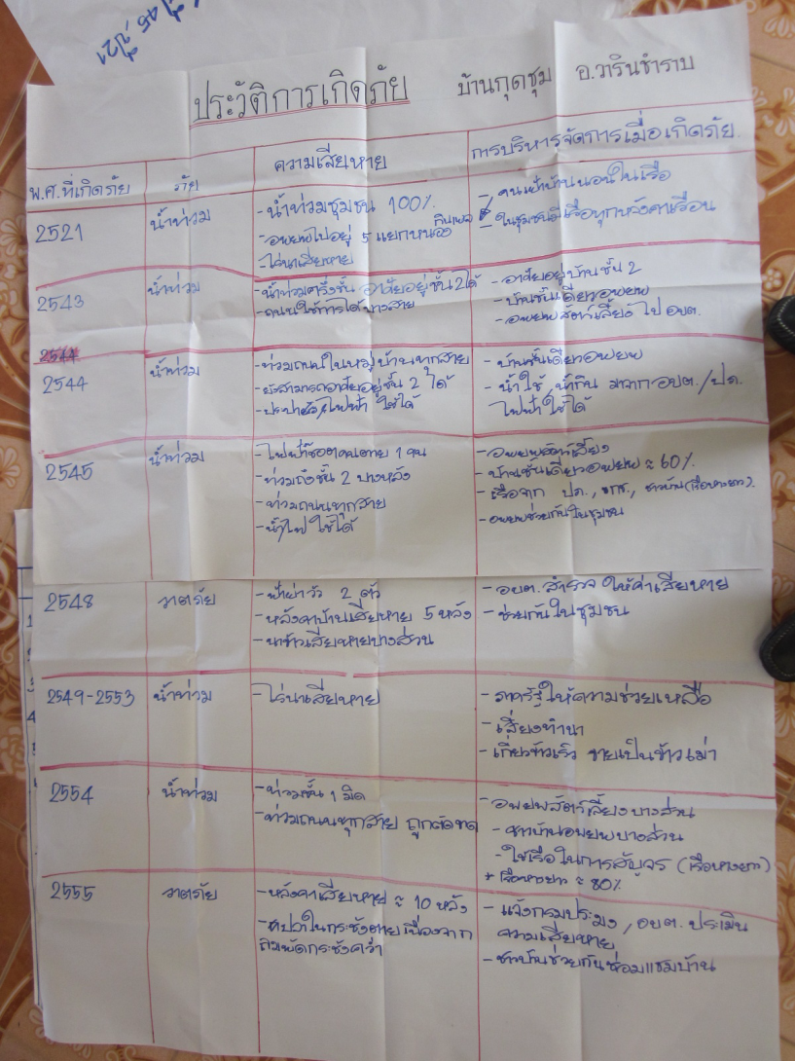 ปี 45 ปี 21
ประวัติการเกิดภัย บ้านกุดชุม อ.วารินชำราบ
พ.ศ.ที่เกิดภัย ภัย ความเสียหาย การบริหารจัดการเมื่อเกิดภัย
2521 น้ำท่วม
- น้ำท่วมชุมชน 100%
- อพยพไปอยู่ 5 แยกหนองกินเพล
- ไร่นาเสียหาย
- คนเฝ้าบ้านนอนในเรือ
- ในชุมชนมีเรือทุกหลังคาเรือน
2543 น้ำท่วม
- น้ำท่วมครึ่งชั้น อาศัยอยู่ชั้น 2 ได้
- ถนนใช้ทำได้บางสาย
- อาศัยอยู่บ้านชั้น 2
- บ้านชั้นเดียวอพยพ
- อพยพสัตว์เลี้ยงไป อบต.
2544
2544 น้ำท่วม
- ท่วมถนนในหมู่บ้านทุกสาย
- ยังสามารถอาศัยอยู่ชั้น 2 ได้
- ประปา ไฟฟ้า ใช้ได้
- บ้านชั้นเดียวอพยพ
- น้ำใช้, น้ำกิน มาจากอบต./ปภ.
ไฟฟ้าใช้ได้
2545 น้ำท่วม
- ไฟฟ้าช็อตคนตาย 1 คน
- ท่วมถึงชั้น 2 บางหลัง
- ท่วมถนนทุกสาย
- น้ำ/ไฟ ใช้ได้
- อพยพสัตว์เลี้ยง
- บ้านชั้นเดียวอพยพ ≈ 60%
- เรือจาก ปภ., ชาวบ้าน (เรือหางยาว).
- อพยพช่วยกันในชุมชน
2548 วาตภัย
- ฟ้าผ่าวัว 2 ตัว
- หลังคาบ้านเสียหาย 5 หลัง
- นาข้าวเสียหายบางส่วน
- อบต. สำรวจ ให้ค่าเสียหาย
- ช่วยกันในชุมชน
2549-2553 น้ำท่วม
- ไร่นาเสียหาย
- ภาครัฐให้ความช่วยเหลือ
- เสี่ยงทำนา
- เกี่ยวข้าวเร็ว ขายเป็นข้าวเม่า
2554 น้ำท่วม
- ท่วมชั้น 1 มิด
- ท่วมถนนทุกสาย ถูกตัดขาด
- อพยพสัตว์เลี้ยงบางส่วน
- ชาวบ้านอพยพบางส่วน
- ใช้เรือในการสัญจร (เรือหางยาว)
* เรือหางยาว ≈ 80%
2555 วาตภัย
- หลังคาเสียหาย ≈ 10 หลัง
- ปลาในกระชังตายเนื่องจาก
ลมพัดกระชังคว่ำ
- แจ้งกรมประมง, อบต. ประเมิน
ความเสียหาย
- ชาวบ้านช่วยกันซ่อมแซมบ้าน